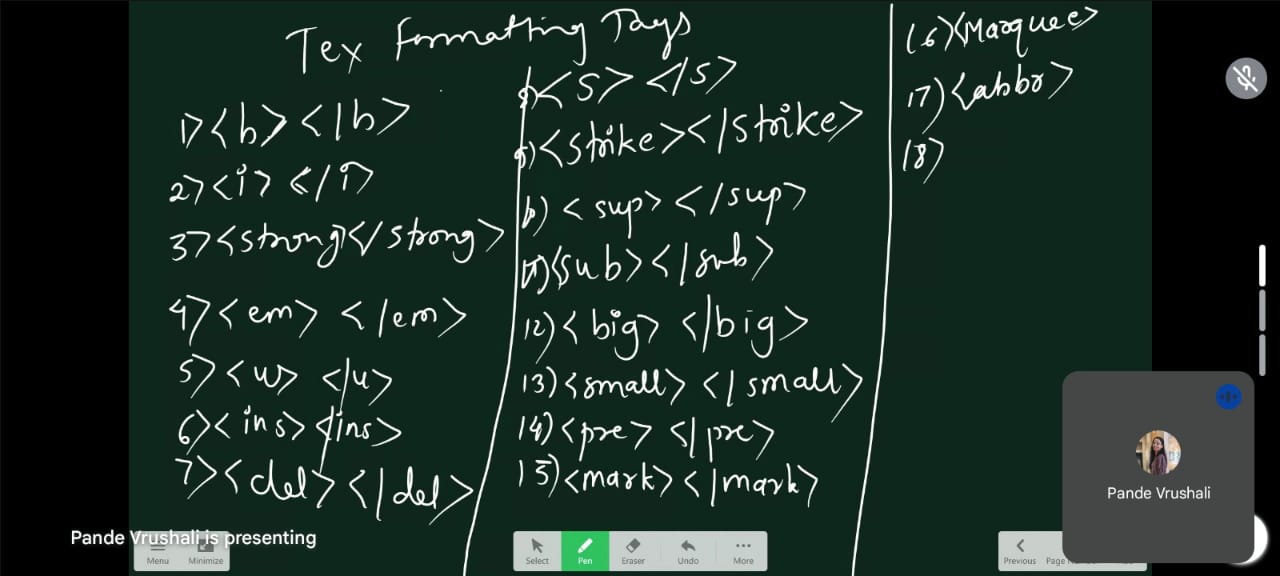 Tex Formatting Tags
1) <b> </b>
2) <i> </i>
3) <strong> </strong>
4) <em> </em>
5) <u> </u>
6) <ins> </ins>
7) <del> </del>
8) <s> </s>
9) <strike> </strike>
10) <sup> </sup>
11) <sub> </sub>
12) <big> </big>
13) <small> </small>
14) <pre> </pre>
15) <mark> </mark>
16) <Marquee>
17) <abbr>
18)
Pande Vrushali
Pande Vrushali is presenting
Menu
Minimize
Select
Pen
Eraser
Undo
More
Previous
Page